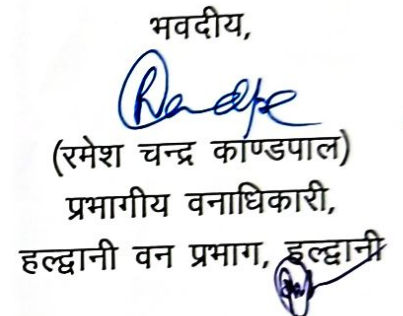 भवदीय,
(रमेश चन्द्र काण्डपाल)
प्रभागीय वनाधिकारी,
हल्द्वानी वन प्रभाग, हल्द्वानी